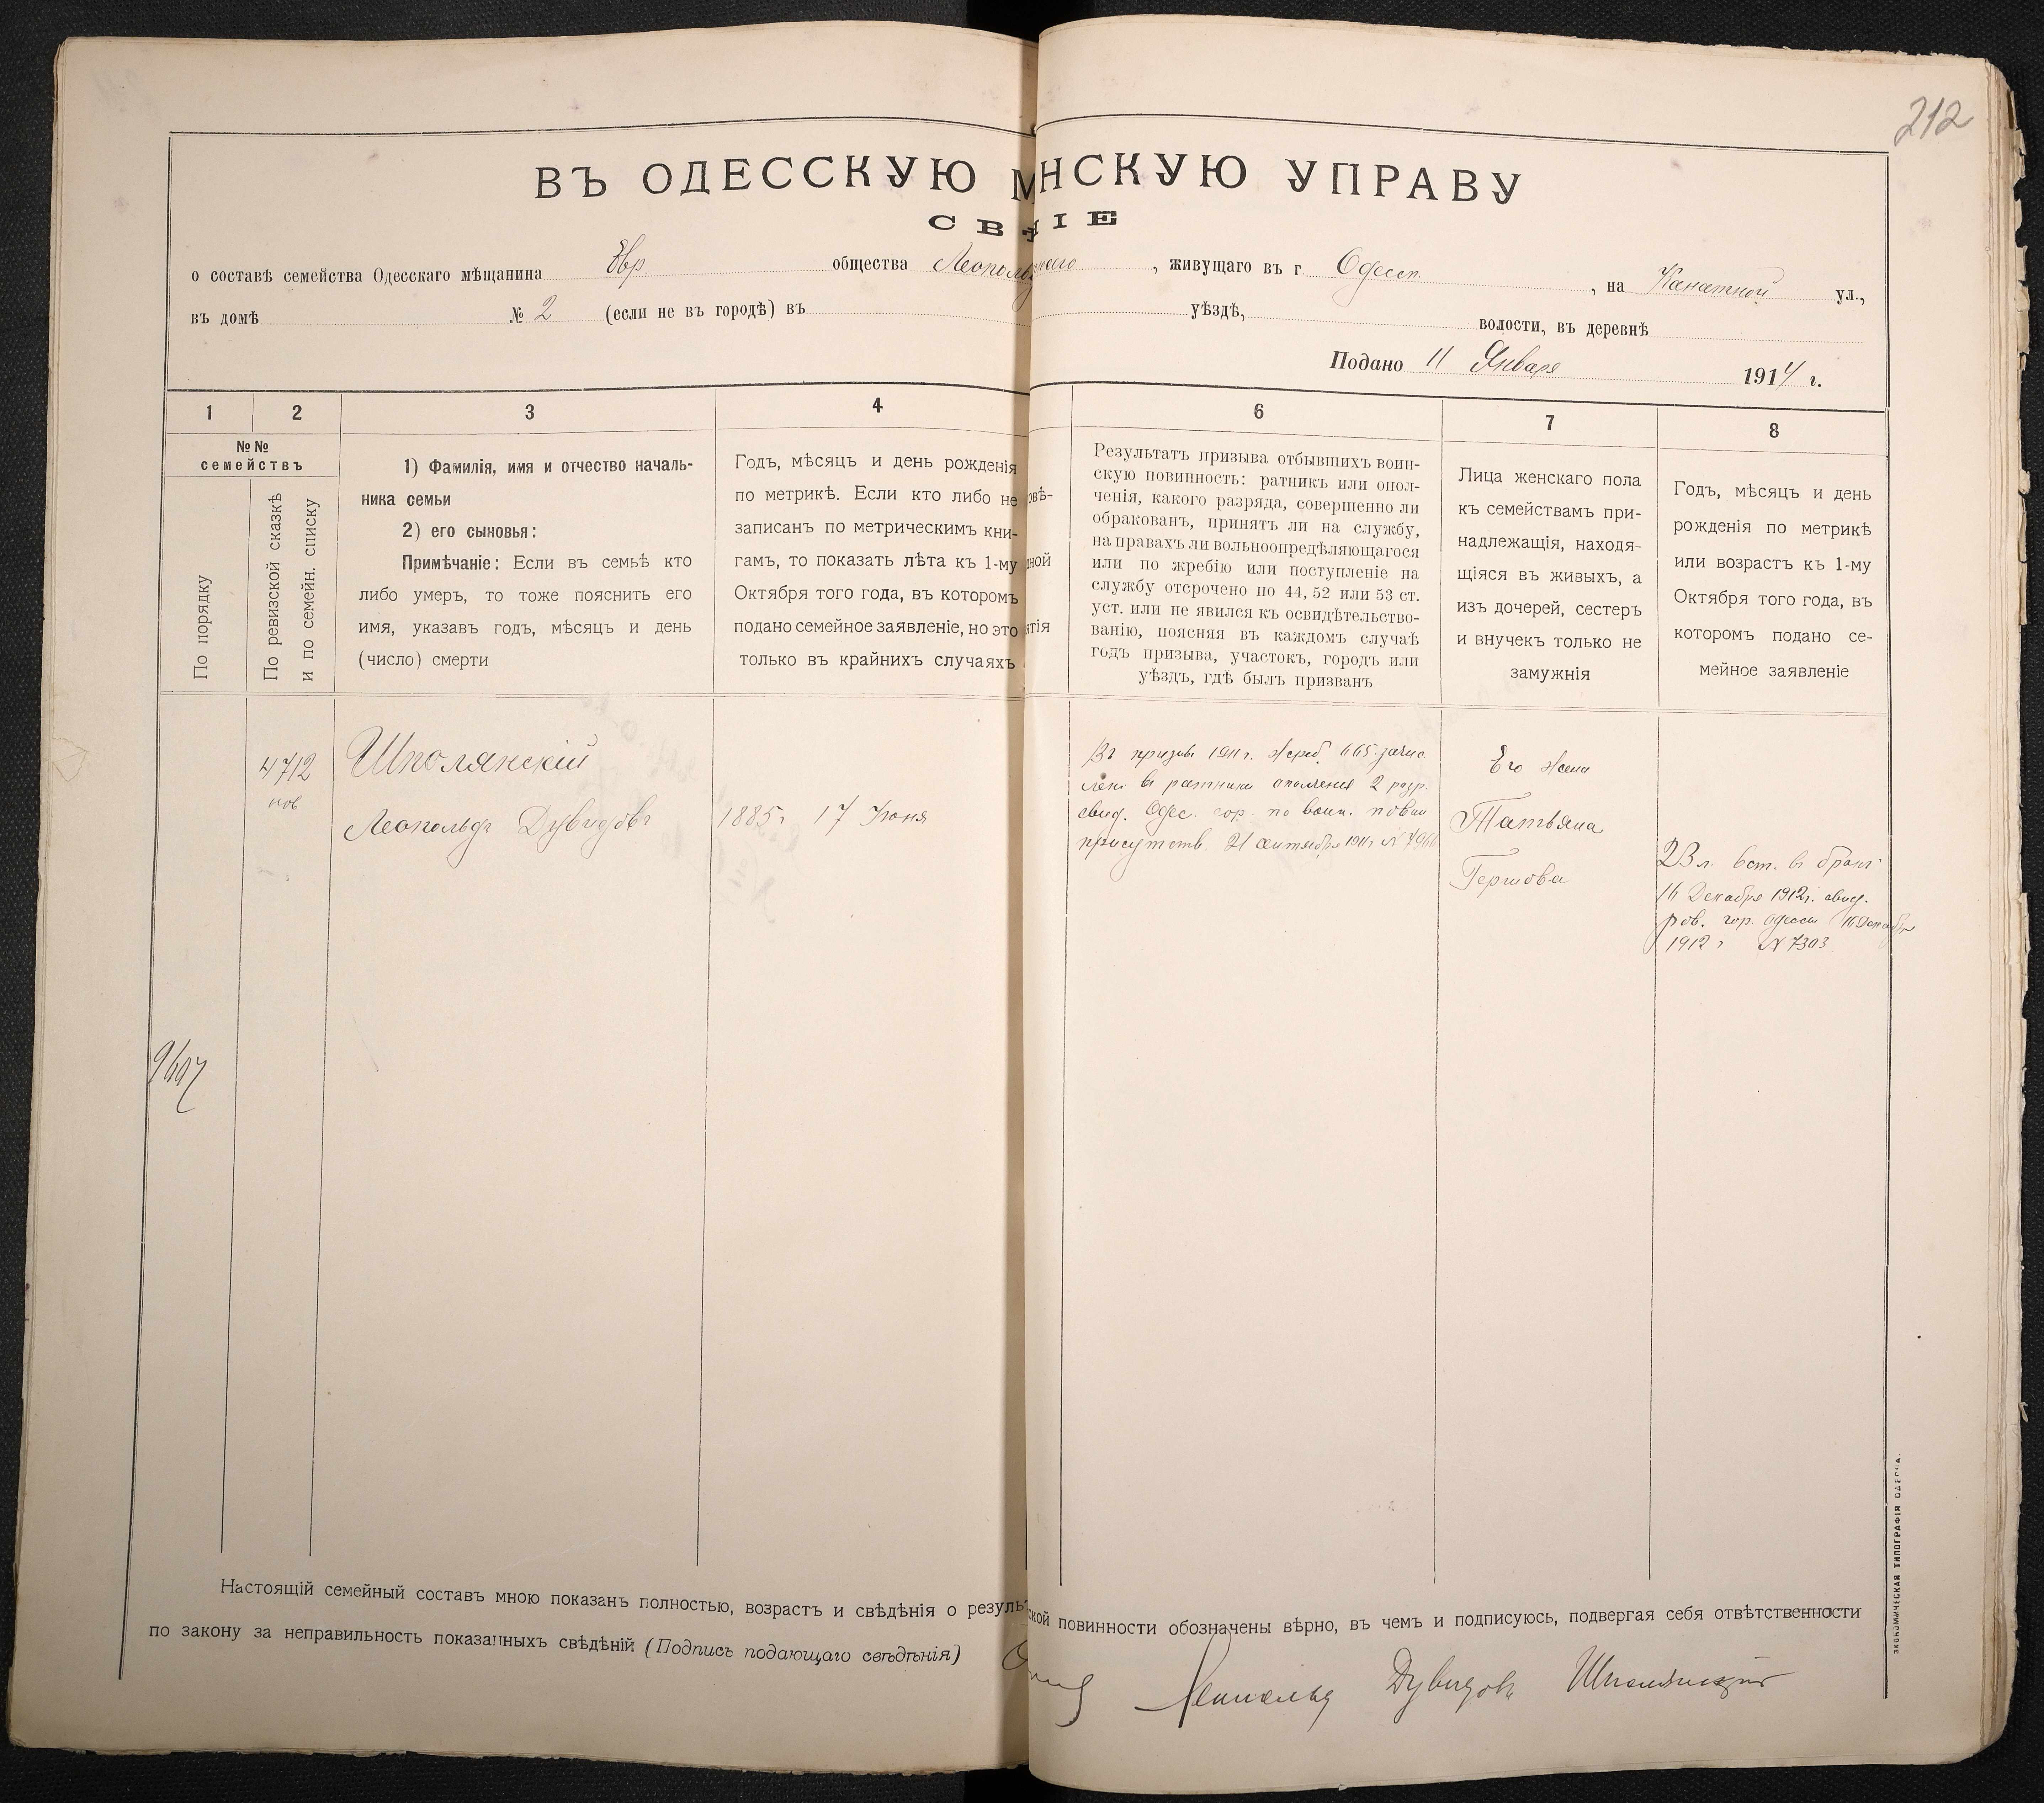 212
ВЪ ОДЕССКУЮ М НСКУЮ УПРАВУ
СВѢ НІЕ
о составѣ семейства Одесскаго мѣщанина Евр. общества Леопольд , живущаго въ г. Одессѣ , на Канатной ул.,
въ домѣ № 2 (если не въ городѣ) въ уѣздѣ, волости, въ деревнѣ
Подано 11 Января 1914 г.
1 2 3 4 6 7 8
№№ семействъ
По порядку
По ревизской сказкѣ
и по семейн. списку
1) Фамилія, имя и отчество началь-
ника семьи
2) его сыновья:
Примѣчаніе: Если въ семьѣ кто
либо умеръ, то тоже пояснить его
имя, указавъ годъ, мѣсяцъ и день
(число) смерти
Годъ, мѣсяцъ и день рожденія
по метрикѣ. Если кто либо не
записанъ по метрическимъ кни-
гамъ, то показать лѣта къ 1-му
Октября того года, въ которомъ
подано семейное заявленіе, но это
только въ крайнихъ случаяхъ
овѣ-
дной
ятія
Результатъ призыва отбывшихъ воин-
скую повинность: ратникъ или опол-
ченія, какого разряда, совершенно ли
обракованъ, принятъ ли на службу,
на правахъ ли вольноопредѣляющагося
или по жребію или поступленіе на
службу отсрочено по 44, 52 или 53 ст.
уст. или не явился къ освидѣтельство-
ванію, поясняя въ каждомъ случаѣ
годъ призыва, участокъ, городъ или
уѣздъ, гдѣ былъ призванъ
Лица женскаго пола
къ семействамъ при-
надлежащія, находя-
щіяся въ живыхъ, а
изъ дочерей, сестеръ
и внучекъ только не
замужнія
Годъ, мѣсяцъ и день
рожденія по метрикѣ
или возрастъ къ 1-му
Октября того года, въ
которомъ подано се-
мейное заявленіе
4712
нов
Шполянскій
Леопольдъ Дувидовъ
1885 г 17 Іюня
Въ призывѣ 1911 г. жреб. 665 зачис
ленъ въ ратники ополченія 2 разр.
свид. Одес. гор. по воин. повин
присутств. 21 сентября 1911 г №
Его жена
Татьяна
Гершова
23 л. вст. въ бракъ
16 Декабря 1912 г. свид.
рав. гор. Одессы 16 Декабря
1912 г № 7303
9697
Настоящій семейный составъ мною показанъ полностью, возрастъ и свѣдѣнія о резуль ской повинности обозначены вѣрно, въ чемъ и подписуюсь, подвергая себя отвѣтственности
по закону за неправильность показанныхъ свѣдѣній (Подпись подающаго свѣдѣнія)
Леопольд Дувидов Шполянскій
ЭКОНОМИЧЕСКАЯ ТИПОГРАФІЯ ОДЕССА.